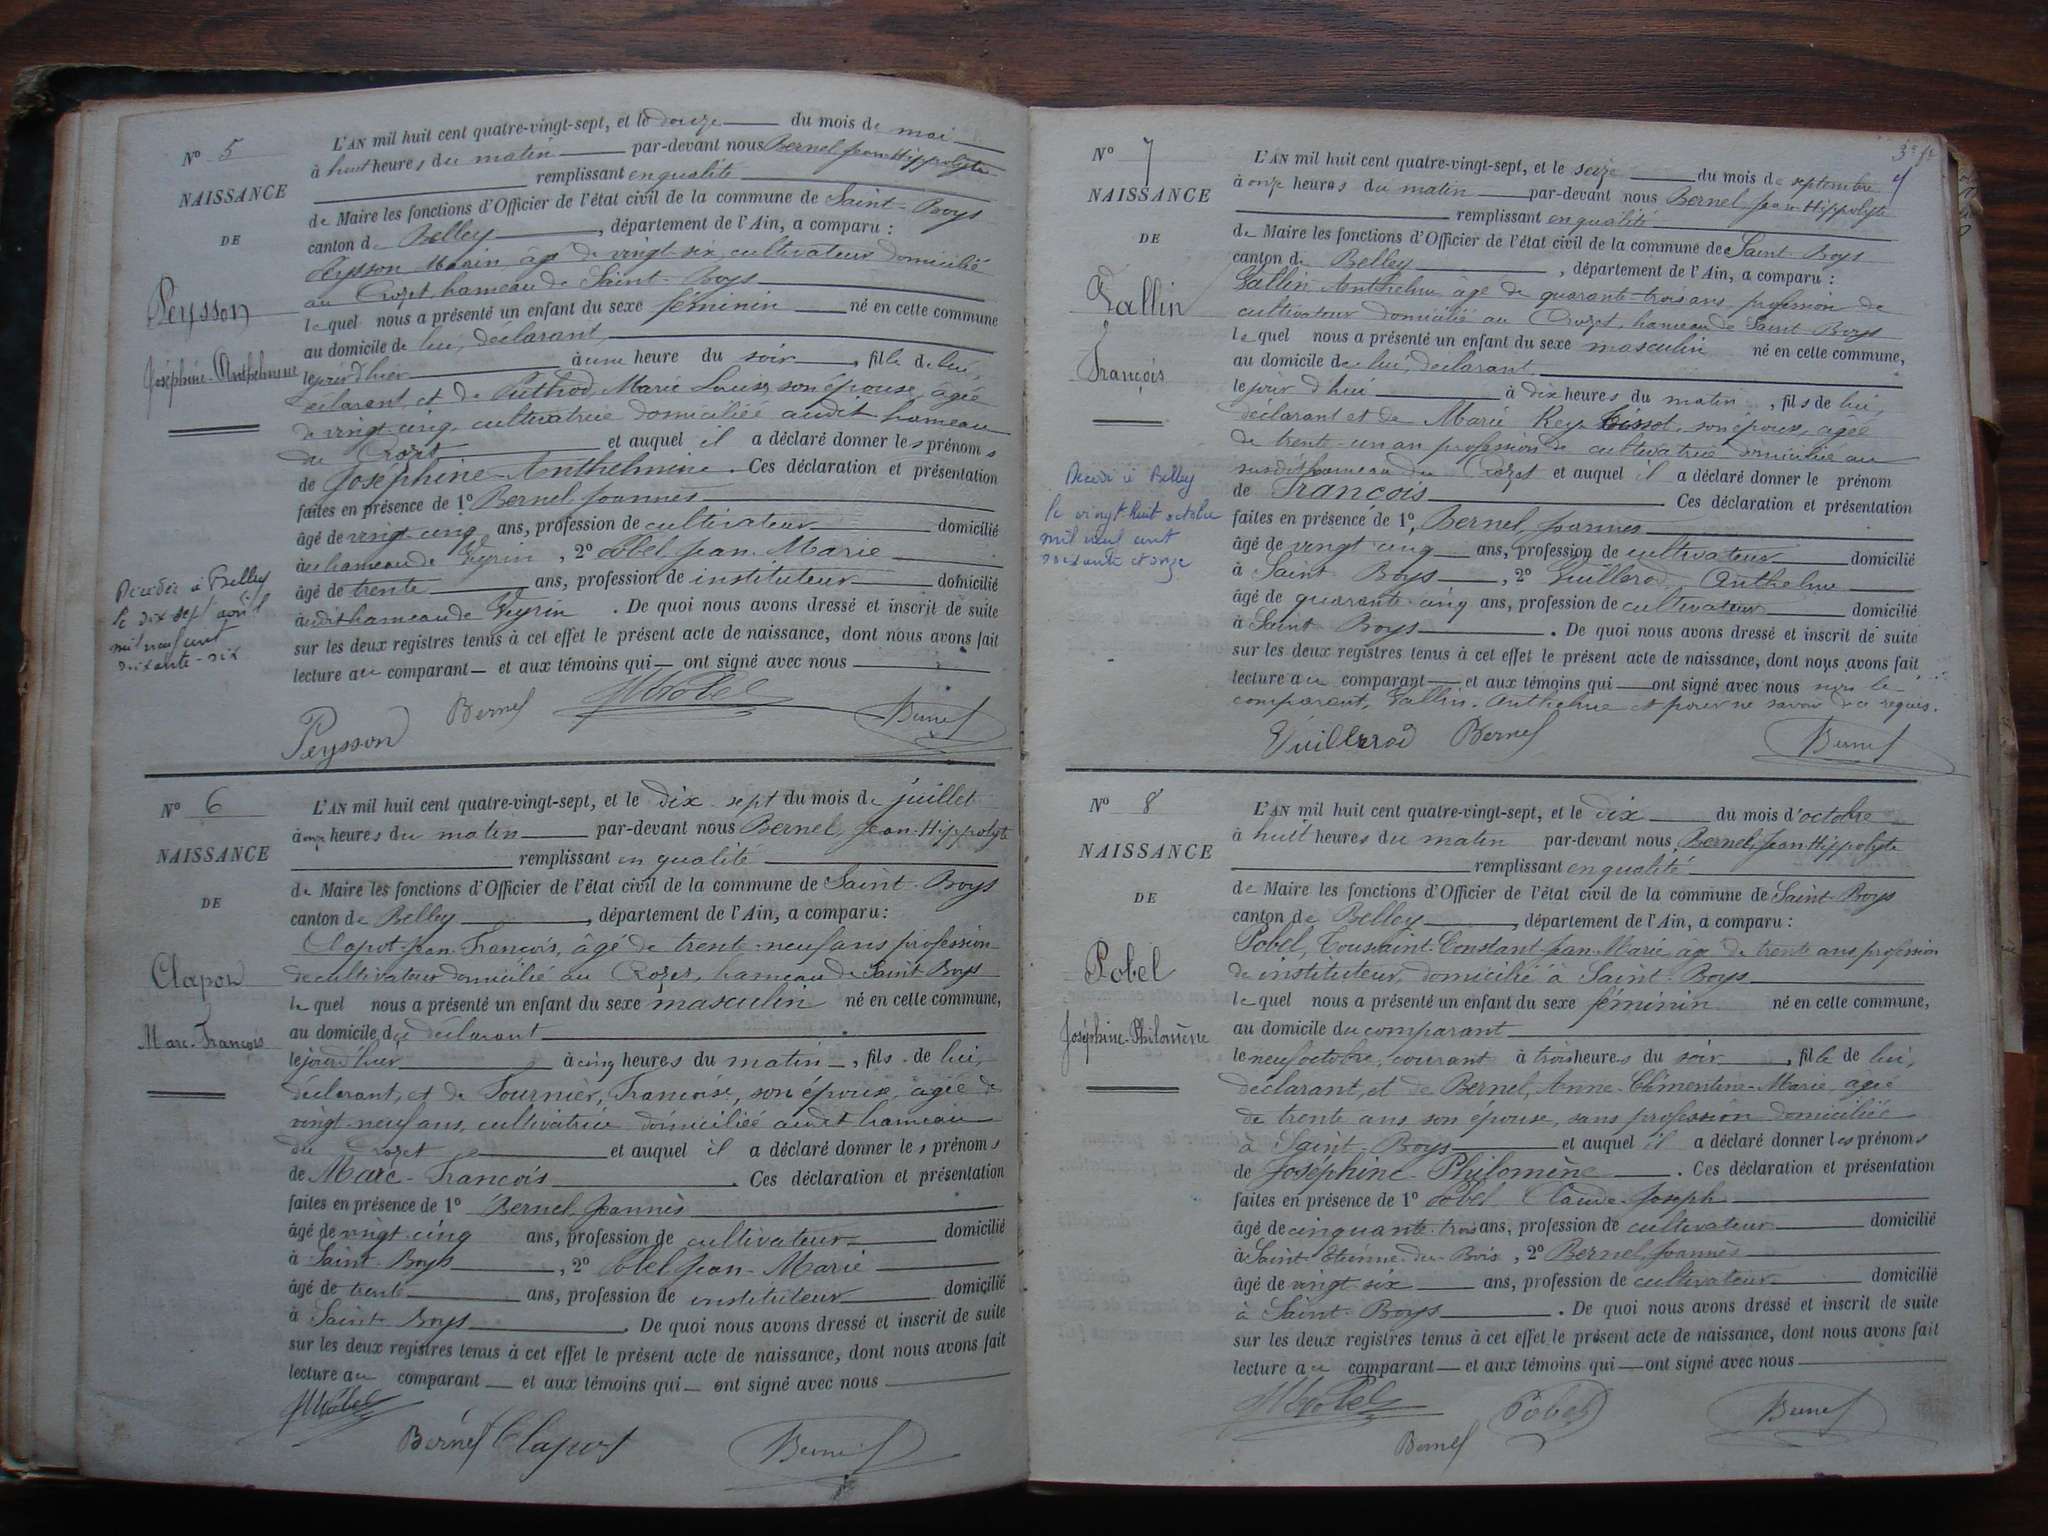 N° 5
NAISSANCE
DE
Peysson
Joséphine-Anthelmine
Décédée à Belley
le dix sept avril
mil neuf cent
soixante-dix
L'AN mil huit cent quatre-vingt-sept, et le douze du mois de mai
à huit heures du matin par-devant nous Bernel Jean-Hippolyte
remplissant en qualité
de Maire les fonctions d'Officier de l'état civil de la commune de Saint-Boys
canton de Belley, département de l'Ain, a comparu :
Peysson Marin, âgé de vingt-six, cultivateur domicilié
au Crozet, hameau de Saint-Boys
lequel nous a présenté un enfant du sexe féminin né en cette commune
au domicile de lui, déclarant,
le jour d'hier à une heure du soir, fille de lui,
déclarant, et de Puthod, Marie Louise, son épouse, âgée
de vingt cinq, cultivatrice domiciliée audit hameau
du Crozet et auquel il a déclaré donner les prénoms
de Joséphine-Anthelmine. Ces déclaration et présentation
faites en présence de 1° Bernel, Joannès
âgé de vingt-cinq ans, profession de cultivateur domicilié
au hameau de Veyrin, 2° Pobel Jean-Marie
âgé de trente ans, profession de instituteur domicilié
audit hameau de Veyrin. De quoi nous avons dressé et inscrit de suite
sur les deux registres tenus à cet effet le présent acte de naissance, dont nous avons fait
lecture au comparant et aux témoins qui ont signé avec nous
Peysson Bernel JMPobel Bernel
N° 6
NAISSANCE
DE
Clapot
Marc-François
L'AN mil huit cent quatre-vingt-sept, et le dix-sept du mois de juillet
à onze heures du matin par-devant nous Bernel, Jean-Hippolyte
remplissant en qualité
de Maire les fonctions d'Officier de l'état civil de la commune de Saint-Boys
canton de Belley, département de l'Ain, a comparu :
Clapot Jean-François, âgé de trente-neuf ans profession
de cultivateur domicilié au Crozet, hameau de Saint Boys
lequel nous a présenté un enfant du sexe masculin né en cette commune,
au domicile du déclarant
le jour d'hier à cinq heures du matin, fils de lui,
déclarant, et de Fournier, Françoise, son épouse, âgée de
vingt-neuf ans, cultivatrice domiciliée audit hameau
du Crozet et auquel il a déclaré donner les prénoms
de Marc-François. Ces déclaration et présentation
faites en présence de 1° Bernel, Joannès
âgé de vingt-cinq ans, profession de cultivateur domicilié
à Saint-Boys, 2° Pobel Jean-Marie
âgé de trente ans, profession de instituteur domicilié
à Saint-Boys. De quoi nous avons dressé et inscrit de suite
sur les deux registres tenus à cet effet le présent acte de naissance, dont nous avons fait
lecture au comparant et aux témoins qui ont signé avec nous
JMPobel
Bernel Clapot Bernel
N° 7
NAISSANCE
DE
Vallin
François
Décédé à Belley
le vingt-huit octobre
mil neuf cent
soixante et onze
L'AN mil huit cent quatre-vingt-sept, et le seize du mois de septembre
à onze heures du matin par-devant nous Bernel Jean-Hippolyte
remplissant en qualité
de Maire les fonctions d'Officier de l'état civil de la commune de Saint Boys
canton de Belley, département de l'Ain, a comparu :
Vallin Anthelme âgé de quarante-trois ans, profession de
cultivateur domicilié au Crozet, hameau de Saint Boys
lequel nous a présenté un enfant du sexe masculin né en cette commune,
au domicile de lui, déclarant
le jour d'hui à dix heures du matin, fils de lui,
déclarant et de Marie Rey-Tissot, son épouse, âgée
de trente-un an profession de cultivatrice domiciliée au
susdit hameau du Crozet et auquel il a déclaré donner le prénom
de François Ces déclaration et présentation
faites en présence de 1° Bernel, Joannès
âgé de vingt cinq ans, profession de cultivateur domicilié
à Saint Boys, 2° Vuillerod, Anthelme
âgé de quarante-cinq ans, profession de cultivateur domicilié
à Saint Boys. De quoi nous avons dressé et inscrit de suite
sur les deux registres tenus à cet effet le présent acte de naissance, dont nous avons fait
lecture au comparant et aux témoins qui ont signé avec nous
comparant, Vallin, Anthelme et pour ne savoir de requis.
Vuillerod Bernel Bernel
N° 8
NAISSANCE
DE
Pobel
Joséphine-Philomène
L'AN mil huit cent quatre-vingt-sept, et le dix du mois d'octobre
à huit heures du matin par-devant nous Bernel, Jean-Hippolyte
remplissant en qualité
de Maire les fonctions d'Officier de l'état civil de la commune de Saint-Boys
canton de Belley, département de l'Ain, a comparu :
Pobel, Toussaint-Constant-Jean-Marie, âgé de trente ans profession
de instituteur, domicilié à Saint-Boys
lequel nous a présenté un enfant du sexe féminin né en cette commune,
au domicile du comparant
le neuf octobre, courant à trois heures du soir, fille de lui,
déclarant, et de Bernel, Anne-Clémentine-Marie, âgée
de trente ans son épouse, sans profession domiciliée
à Saint-Boys et auquel il a déclaré donner les prénoms
de Joséphine-Philomène. Ces déclaration et présentation
faites en présence de 1° Pobel Claude-Joseph
âgé de cinquante-trois ans, profession de cultivateur domicilié
à Saint-Etienne-du-Bois, 2° Bernel, Joannès
âgé de vingt six ans, profession de cultivateur domicilié
à Saint-Boys. De quoi nous avons dressé et inscrit de suite
sur les deux registres tenus à cet effet le présent acte de naissance, dont nous avons fait
lecture au comparant et aux témoins qui ont signé avec nous
JMPobel Pobel Bernel
Bernel